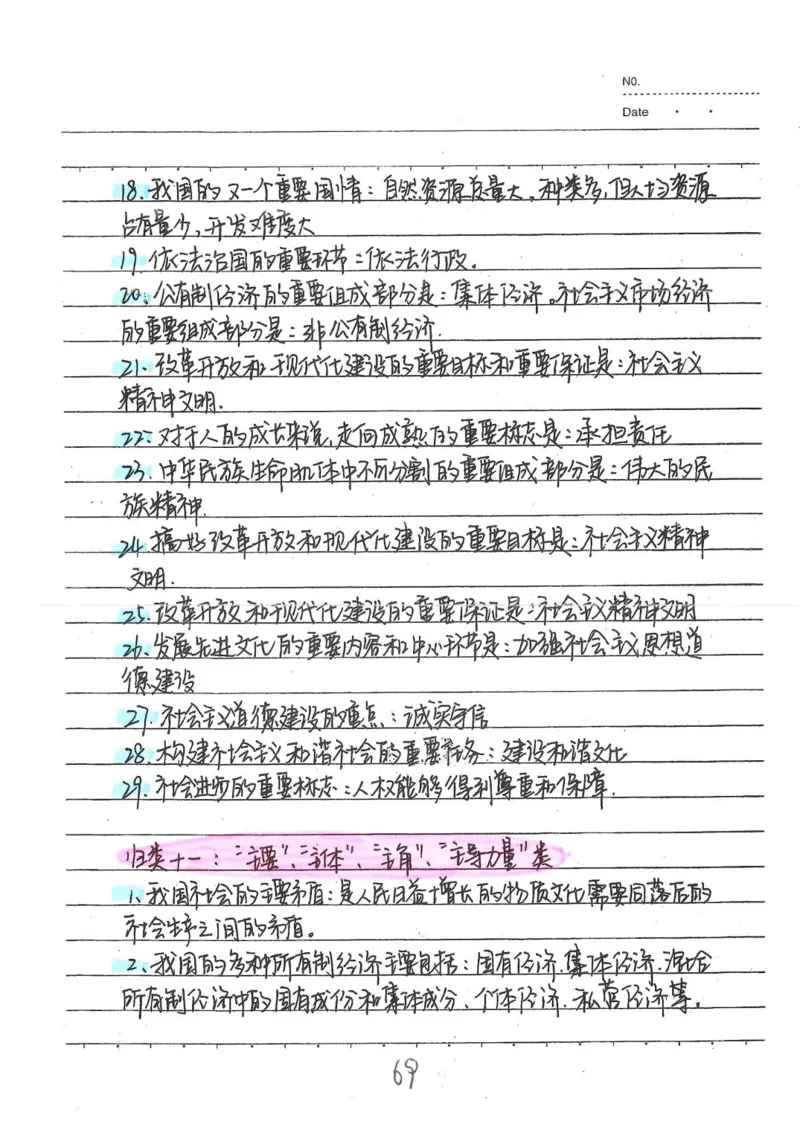 N0.
Date
18.我国的又一个重要国情：自然资源总量大。种类多,但人均资源
占有量少,开发难度大
19.依法治国的重要环节：依法行政。
20.公有制经济的重要组成部分是：集体经济。社会主义市场经济
的重要组成部分是：非公有制经济.
21.改革开放和现代化建设的重要目标和重要保证是：社会主义
精神文明.
22.对于人的成长来说,走向成熟的重要标志是：承担责任
23.中华民族生命肌体中不可分割的重要组成部分是：伟大的民
族精神.
24.搞好改革开放和现代化建设的重要目标是：社会主义精神
文明.
25.改革开放和现代化建设的重要保证是：社会主义精神文明
26.发展先进文化的重要内容和中心环节是：加强社会主义思想道
德建设
27.社会主义道德建设的重点：诚实守信
28.构建社会主义和谐社会的重要任务：建设和谐文化
29.社会进步的重要标志：人权能够得到尊重和保障.
归类十一："主要"、"主体"、"主角"、"主导力量"类
1、我国社会的主要矛盾：是人民日益增长的物质文化需要同落后的
社会生产之间的矛盾。
2、我国的各种所有制经济主要包括：国有经济.集体经济.混合
所有制经济中的国有成份和集体成分、个体经济.私营经济等。
69